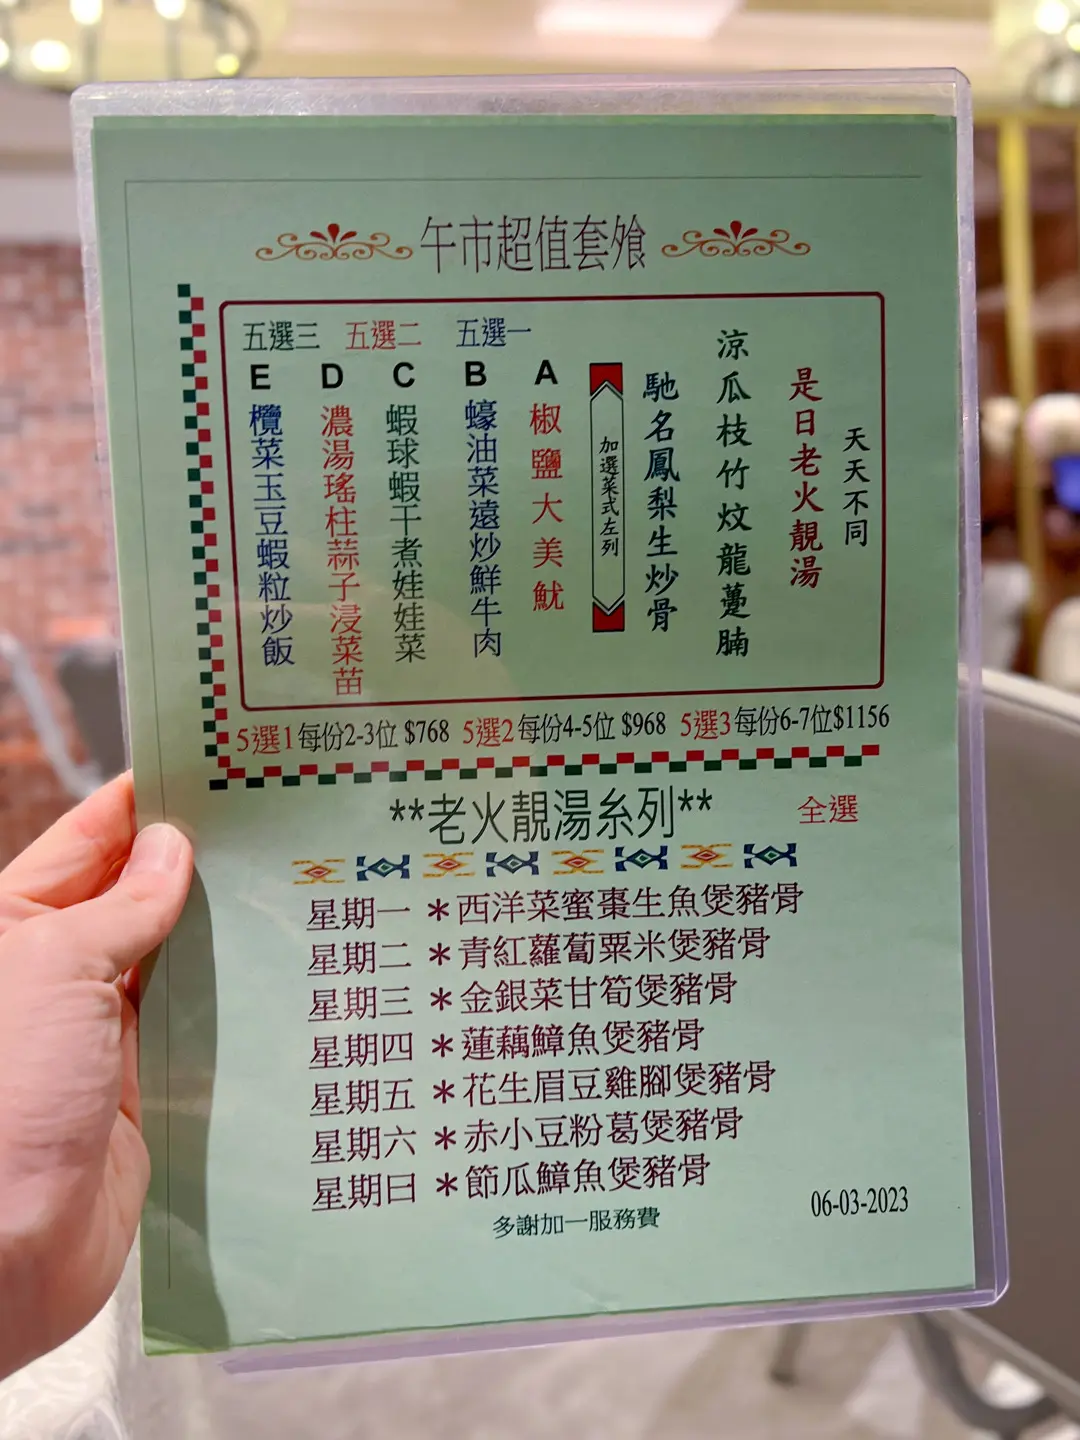 午市超值套飧
天天不同
是日老火靚湯
涼瓜枝竹炆龍躉腩
馳名鳳梨生炒骨
加選菜式左列
五選一
五選二
五選三
A 椒鹽大美魷
B 蠔油菜遠炒鮮牛肉
C 蝦球蝦干煮娃娃菜
D 濃湯瑤柱蒜子浸菜苗
E 欖菜玉豆蝦粒炒飯
5選1每份2-3位 $768 5選2每份4-5位 $968 5選3每份6-7位$1156
**老火靚湯糸列** 全選
星期一 *西洋菜蜜棗生魚煲豬骨
星期二 *青紅蘿蔔粟米煲豬骨
星期三 *金銀菜甘筍煲豬骨
星期四 *蓮藕鱆魚煲豬骨
星期五 *花生眉豆雞腳煲豬骨
星期六 *赤小豆粉葛煲豬骨
星期日 *節瓜鱆魚煲豬骨
多謝加一服務費
06-03-2023